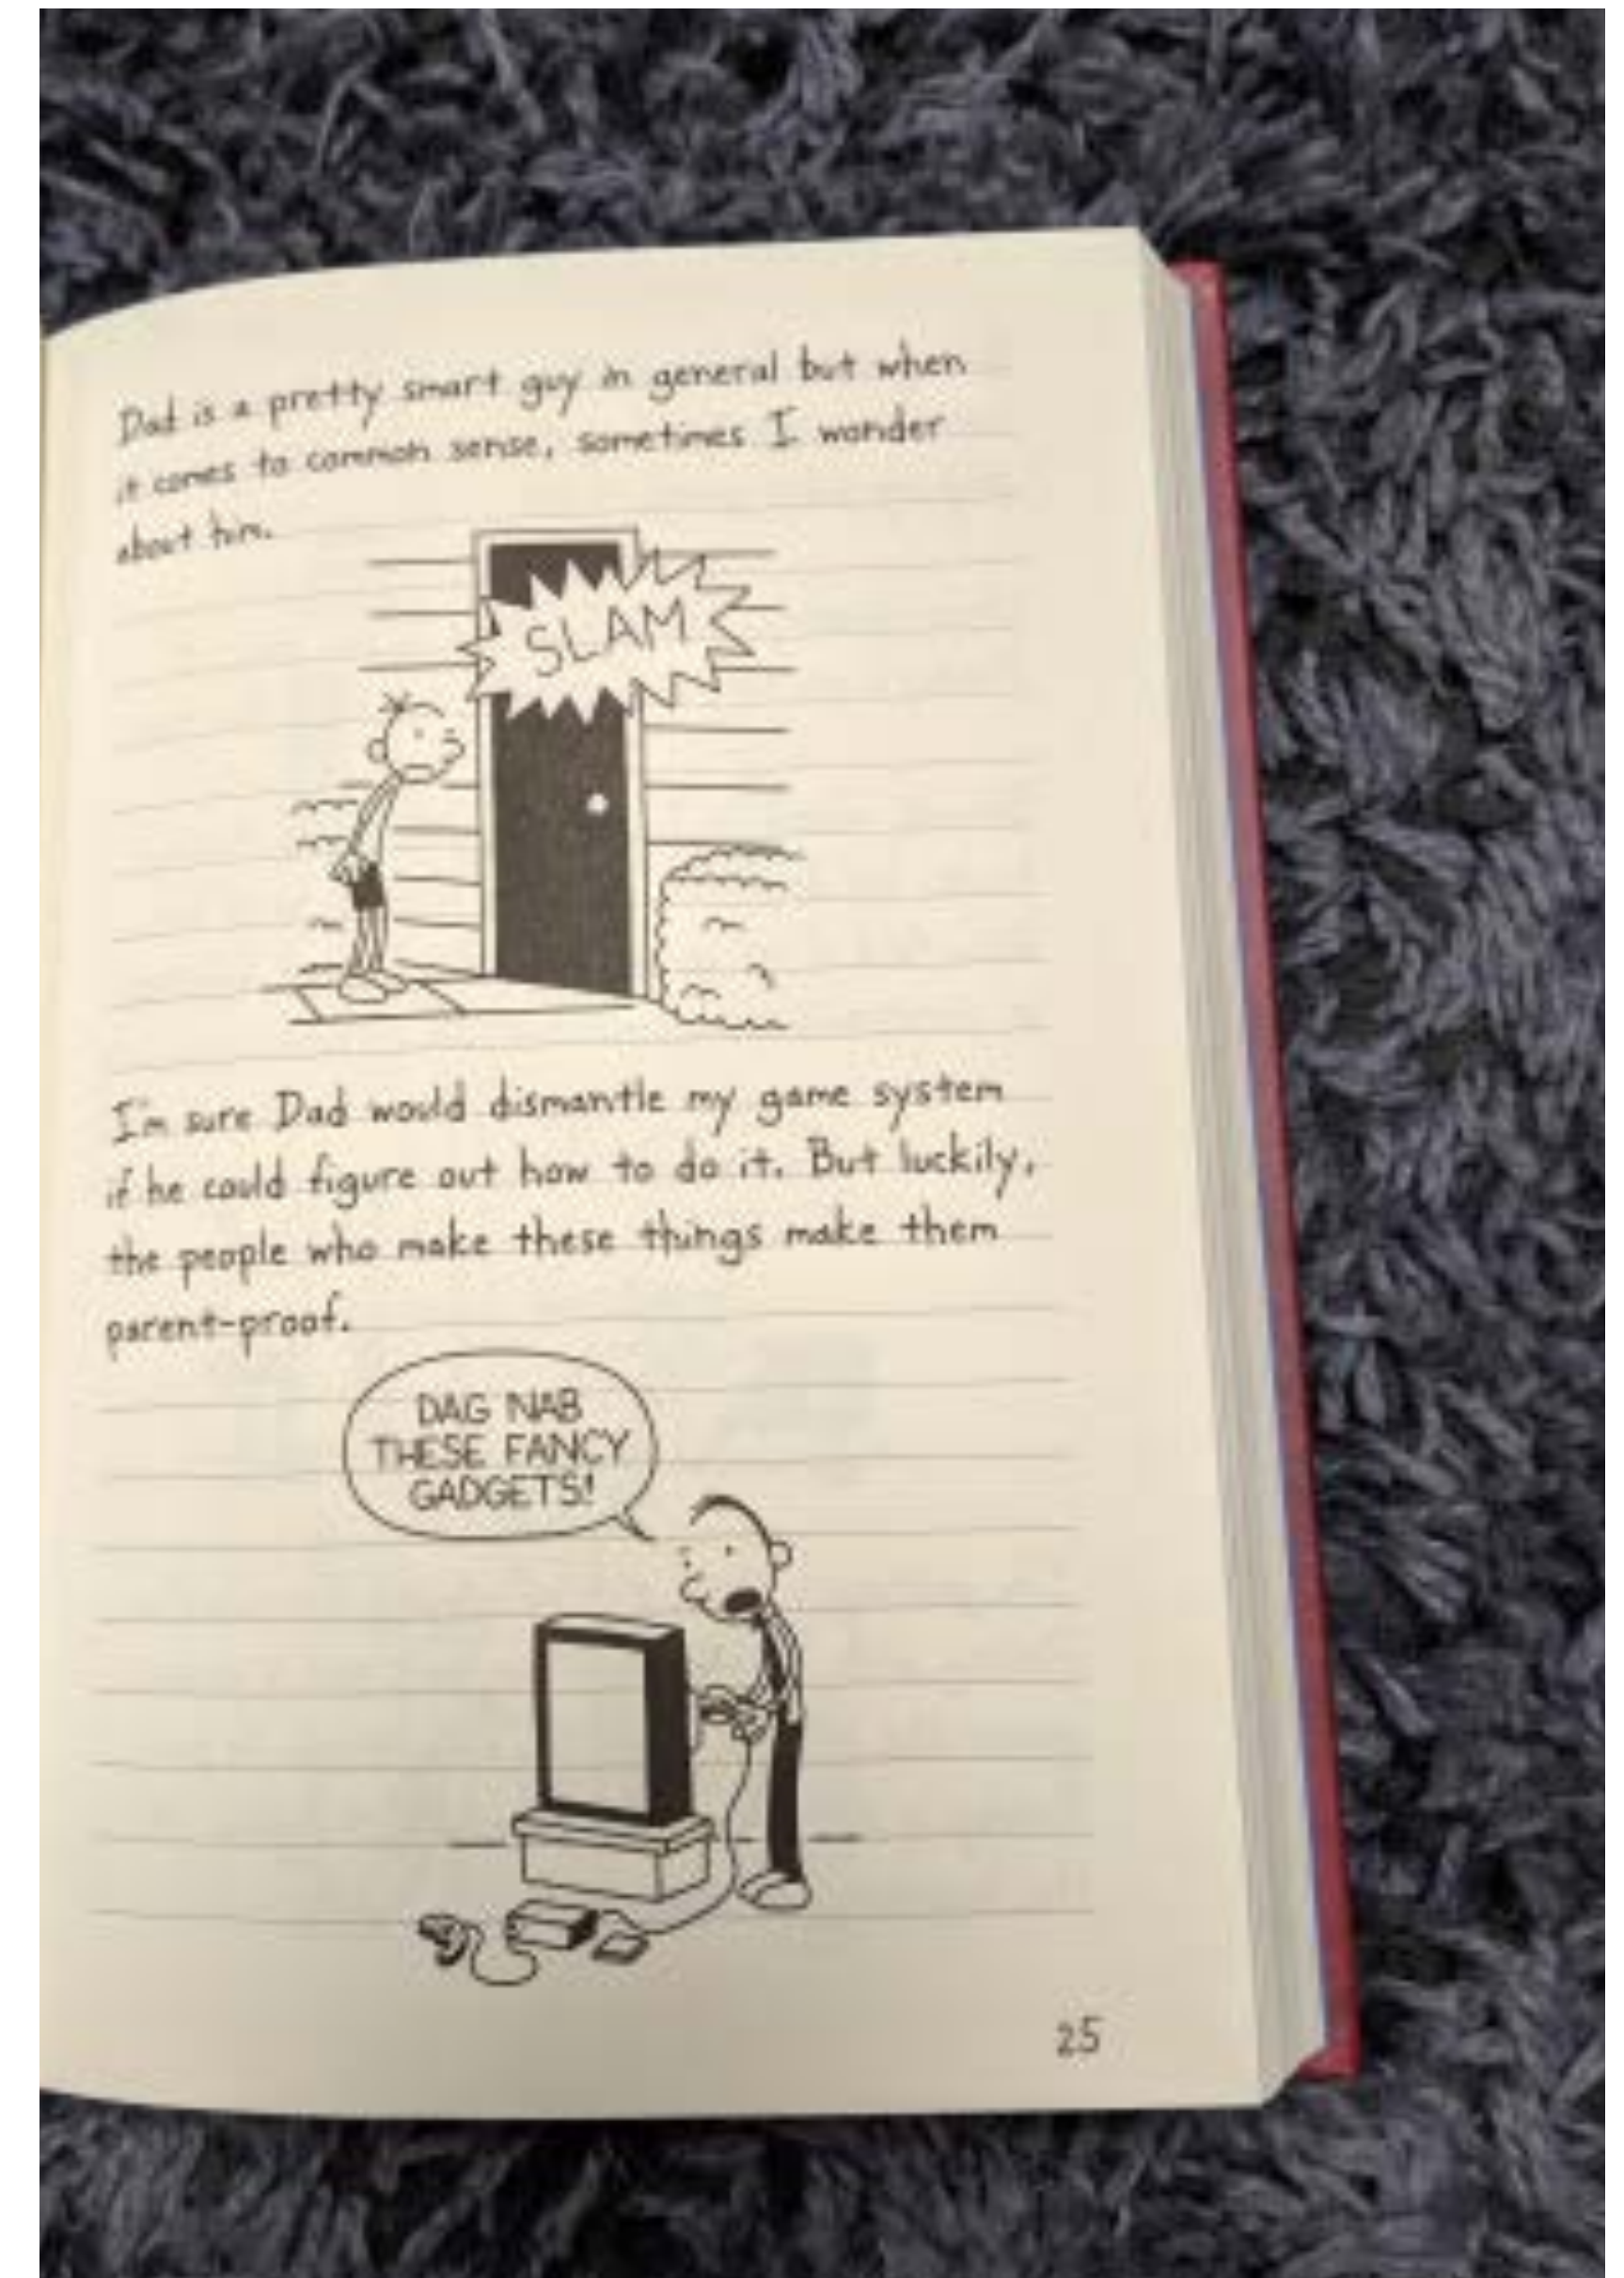 Dad is a pretty smart guy in general but when
it comes to common sense, sometimes I wonder
about him.
SLAM
I'm sure Dad would dismantle my game system
if he could figure out how to do it. But luckily,
the people who make these things make them
parent-proof.
DAG NAB
THESE FANCY
GADGETS!
25